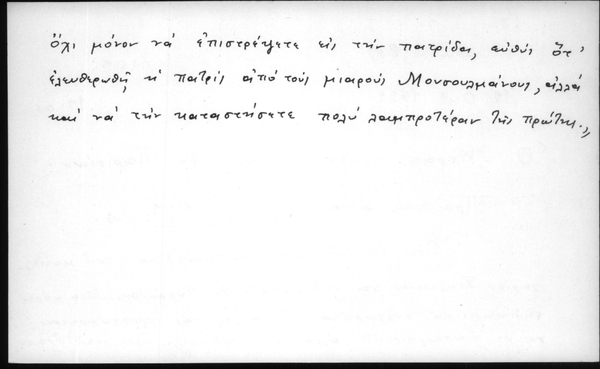 ὄχι μόνον νά ἐπιστρέψετε εἰς τήν πατρίδα, εὐθύς ὅτ'
ἐλευθερωθῇ ἡ πατρίς ἀπό τούς μιαρούς Μουσουλμάνους, ἀλλά
καί νά τήν καταστήσετε πολύ λαμπροτέραν τῆς πρώτης.,,